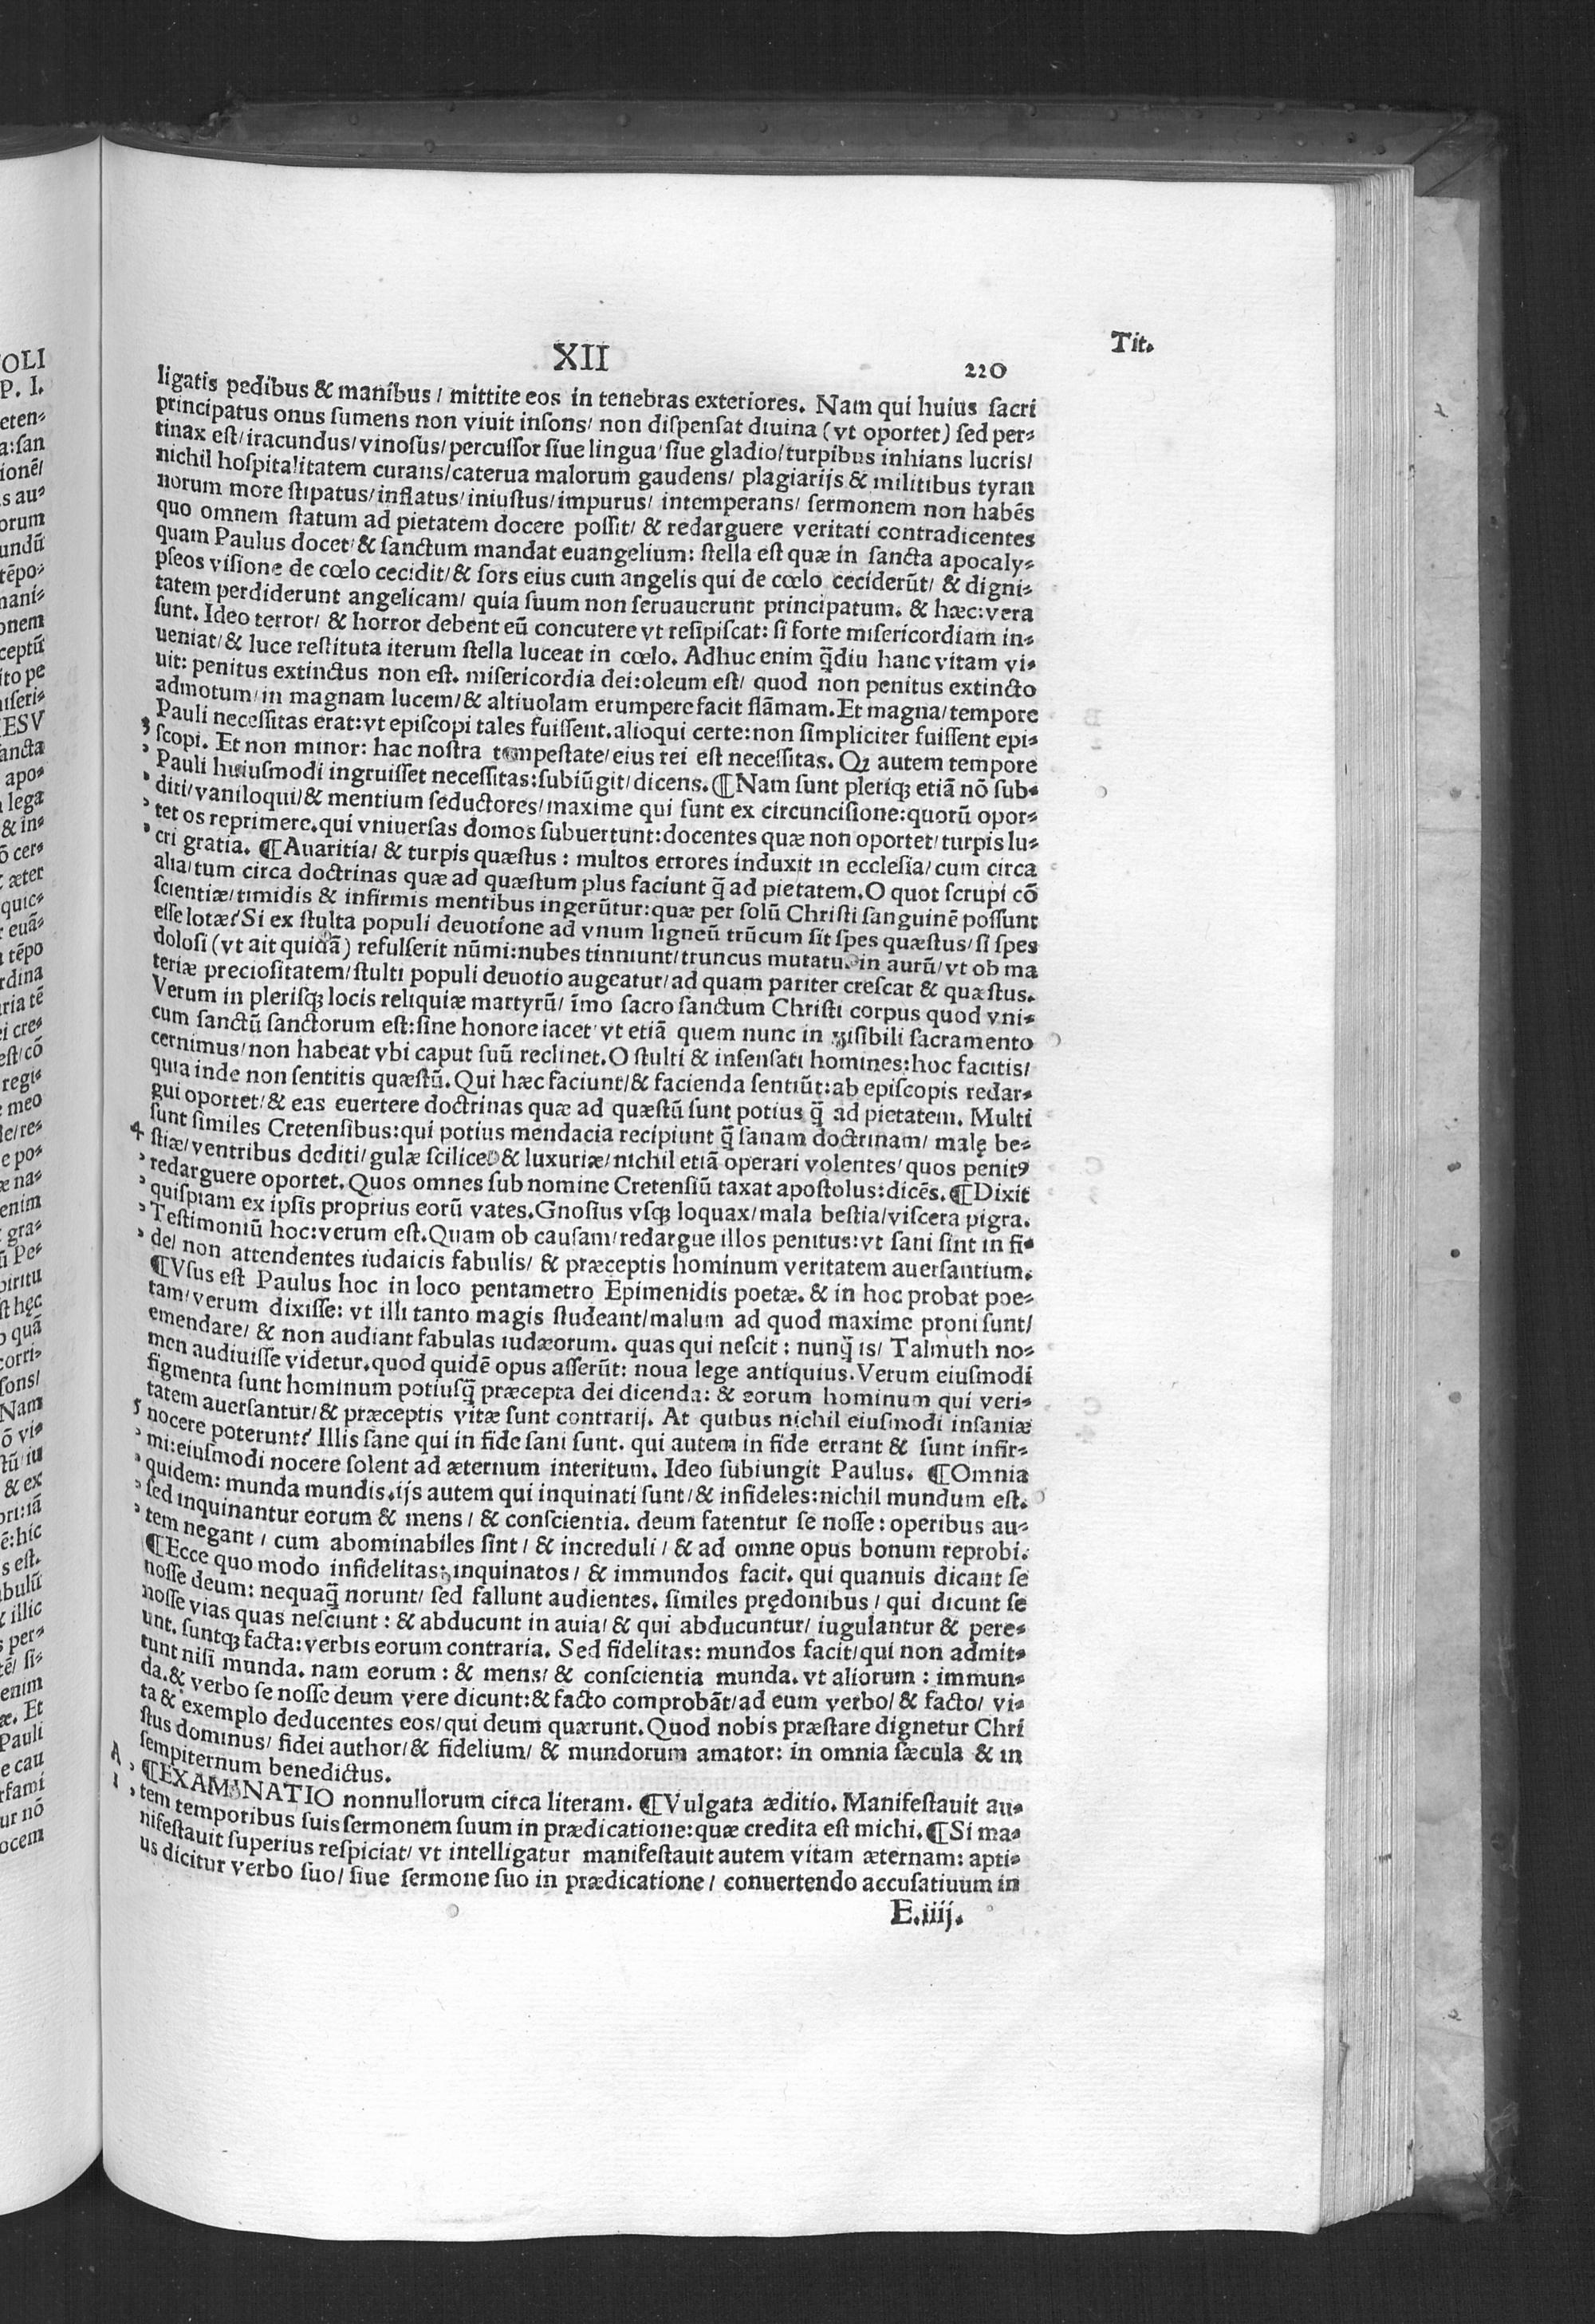 XII
220
Tit.
ligatis pedibus & manibus / mittite eos in tenebras exteriores. Nam qui huius sacri
principatus onus sumens non viuit insons/ non dispensat diuina (vt oportet) sed per-
tinax est/ iracundus/ vinosus/ percussor siue lingua/ siue gladio/ turpibus inhians lucris/
nichil hospitalitatem curans/ caterua malorum gaudens/ plagiarijs & militibus tyran
norum more stipatus/ inflatus/ iniustus/ impurus/ intemperans/ sermonem non habẽs
quo omnem statum ad pietatem docere possit/ & redarguere veritati contradicentes
quam Paulus docet/ & sanctum mandat euangelium: stella est quæ in sancta apocaly-
pseos visione de cœlo cecidit/ & sors eius cum angelis qui de cœlo ceciderũt/ & digni-
tatem perdiderunt angelicam/ quia suum non seruauerunt principatum. & hæc: vera
sunt. Ideo terror/ & horror debent eũ concutere vt resipiscat: si forte misericordiam in-
ueniat/ & luce restituta iterum stella luceat in cœlo. Adhuc enim q̃diu hanc vitam vi-
uit: penitus extinctus non est. misericordia dei: oleum est/ quod non penitus extincto
admotum/ in magnam lucem/ & altiuolam erumpere facit flãmam. Et magna/ tempore
Pauli necessitas erat: vt episcopi tales fuissent. alioqui certe: non simpliciter fuissent epi-
3 scopi. Et non minor: hac nostra tempestate/ eius rei est necessitas. Qꝫ autem tempore
Pauli huiusmodi ingruisset necessitas: subiũgit/ dicens. ¶ Nam sunt pleriqꝫ etiã nõ sub-
diti/ vaniloqui/ & mentium seductores/ maxime qui sunt ex circuncisione: quorũ opor-
tet os reprimere. qui vniuersas domos subuertunt: docentes quæ non oportet/ turpis lu-
cri gratia. ¶ Auaritia/ & turpis quæstus: multos errores induxit in ecclesia/ cum circa
alia/ tum circa doctrinas quæ ad quæstum plus faciunt q̃ ad pietatem. O quot scrupi cõ
scientiæ/ timidis & infirmis mentibus ingerũtur: quæ per solũ Christi sanguinẽ possunt
esse lotæ? Si ex stulta populi deuotione ad vnum ligneũ trũcum sit spes quæstus/ si spes
dolosi (vt ait quidã) refulserit nũmi: nubes tinniunt/ truncus mutatu in aurũ/ vt ob ma
teriæ preciositatem/ stulti populi deuotio augeatur/ ad quam pariter crescat & quæstus.
Verum in plerisqꝫ locis reliquiæ martyrũ/ imo sacro sanctum Christi corpus quod vni-
cum sanctũ sanctorum est: sine honore iacet/ vt etiã quem nunc in visibili sacramento
cernimus/ non habeat vbi caput suũ reclinet. O stulti & insensati homines: hoc facitis/
quia inde non sentitis quæstũ. Qui hæc faciunt/ & facienda sentiũt: ab episcopis redar-
gui oportet/ & eas euertere doctrinas quæ ad quæstũ sunt potius q̃ ad pietatem. Multi
4 sunt similes Cretensibus: qui potius mendacia recipiunt q̃ sanam doctrinam/ malę be-
stiæ/ ventribus dediti/ gulæ scilicet & luxuriæ/ nichil etiã operari volentes/ quos penitꝰ
redarguere oportet. Quos omnes sub nomine Cretensiũ taxat apostolus: dicẽs. ¶ Dixit
quispiam ex ipsis proprius eorũ vates. Gnosius vsqꝫ loquax/ mala bestia/ viscera pigra.
Testimoniũ hoc: verum est. Quam ob causam/ redargue illos penitus: vt sani sint in fi-
de/ non attendentes iudaicis fabulis/ & præceptis hominum veritatem auersantium.
¶ Vsus est Paulus hoc in loco pentametro Epimenidis poetæ. & in hoc probat poe-
tam/ verum dixisse: vt illi tanto magis studeant/ malum ad quod maxime proni sunt/
emendare/ & non audiant fabulas iudæorum. quas qui nescit: nunq̃ is/ Talmuth no-
men audiuisse videtur. quod quidẽ opus asserũt: noua lege antiquius. Verum eiusmodi
figmenta sunt hominum potiusq̃ præcepta dei dicenda: & eorum hominum qui veri-
tatem auersantur/ & præceptis vitæ sunt contrarij. At quibus nichil eiusmodi insaniæ
5 nocere poterunt? Illis sane qui in fide sani sunt. qui autem in fide errant & sunt infir-
mi: eiusmodi nocere solent ad æternum interitum. Ideo subiungit Paulus. ¶ Omnia
quidem: munda mundis. ijs autem qui inquinati sunt/ & infideles: nichil mundum est.
sed inquinantur eorum & mens / & conscientia. deum fatentur se nosse: operibus au-
tem negant / cum abominabiles sint / & increduli / & ad omne opus bonum reprobi.
¶ Ecce quo modo infidelitas: inquinatos / & immundos facit. qui quanuis dicant se
nosse deum: nequaq̃ norunt/ sed fallunt audientes. similes prędonibus / qui dicunt se
nosse vias quas nesciunt: & abducunt in auia/ & qui abducuntur/ iugulantur & pere-
unt. suntqꝫ facta: verbis eorum contraria. Sed fidelitas: mundos facit/ qui non admit-
tunt nisi munda. nam eorum : & mens/ & conscientia munda. vt aliorum : immun-
da. & verbo se nosse deum vere dicunt: & facto comprobãt/ ad eum verbo/ & facto/ vi-
ta & exemplo deducentes eos/ qui deum quærunt. Quod nobis præstare dignetur Chri
stus dominus/ fidei author/ & fidelium/ & mundorum amator: in omnia sæcula & in
sempiternum benedictus.
A ¶ EXAMINATIO nonnullorum circa literam. ¶ Vulgata æditio. Manifestauit au-
1 tem temporibus suis sermonem suum in prædicatione: quæ credita est michi. ¶ Si ma-
nifestauit superius respiciat/ vt intelligatur manifestauit autem vitam æternam: apti-
us dicitur verbo suo/ siue sermone suo in prædicatione / conuertendo accusatiuum in
E.iiij.